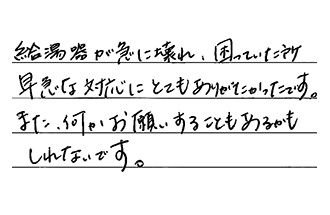 給湯器が急に壊れ、困っていた所
早急な対応にとてもありがたかったです。
また、何かお願いすることもあるかも
しれないです。